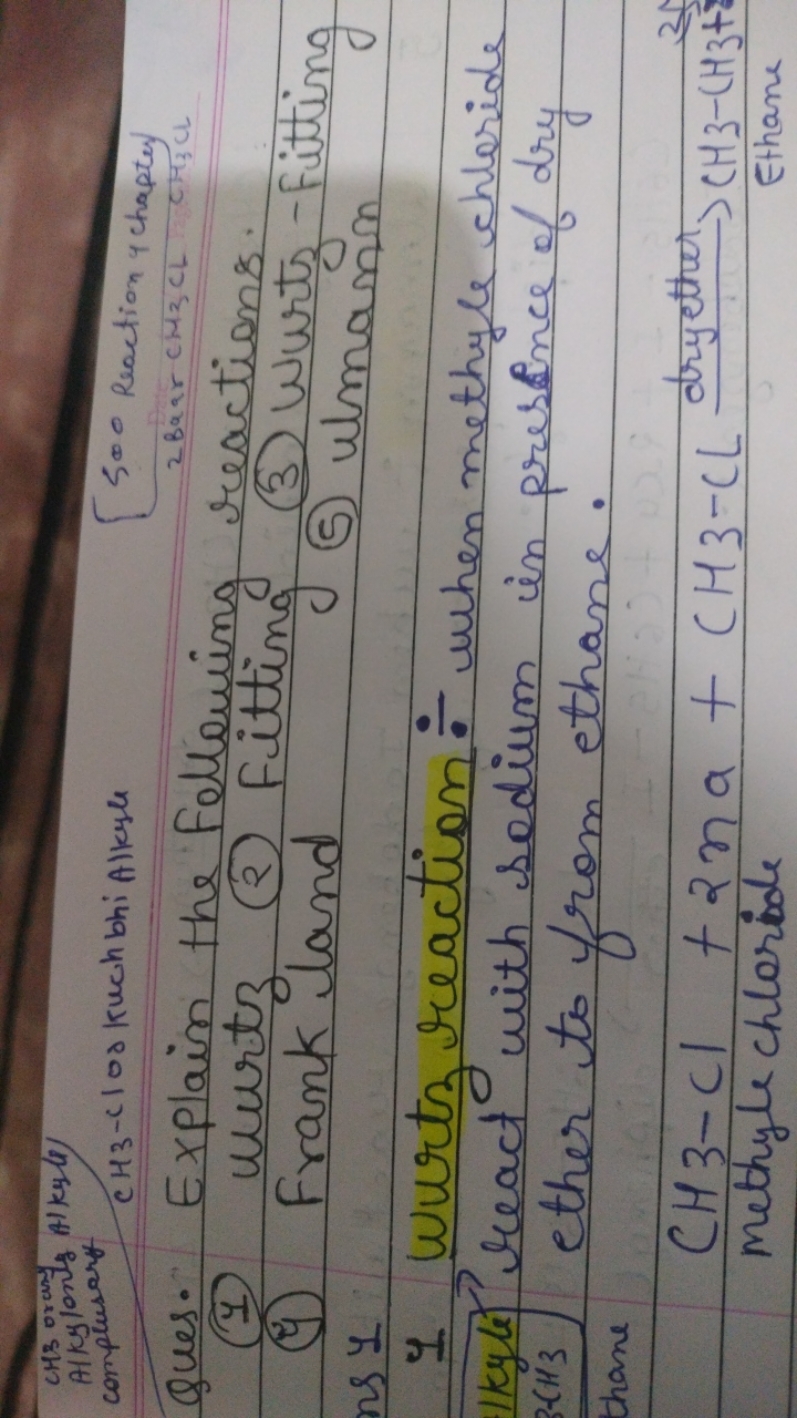 CH3 or any Alkyle
Alkyl only
complusary
CH3-Cl or kuch bhi Alkyle
[ 500 Reaction 4 chapter
2 Baar CH3 CL CH3 CL
Ques. Explain the Following reactions.
① wurtz ② Fitting ③ Wurtz - Fitting
④ Frank land ⑤ ulmann
ns 1
1 wurtz reaction ÷ when methyle chloride
lkyle react with sodium in presence of dry
ether to from ethane.
thane
CH3-Cl + 2na + CH3-CL dry ether → CH3-CH3+2
methyle chloride Ethane